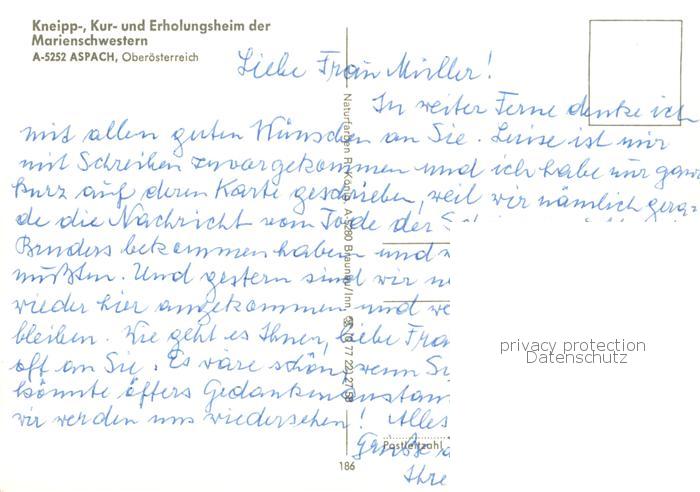 Kneipp-, Kur- und Erholungsheim der
Marienschwestern
A-5252 ASPACH, Oberösterreich
Liebe Frau Müller!
In weiter Ferne denke ich
mit allen guten Wünschen an Sie. Luise ist mir
mit Schreiben zuvorgekommen und ich habe nur ganz
kurz auf deren Karte geschrieben, weil wir nämlich gera-
de die Nachricht vom Tode der
Bruders bekommen haben und
mußten. Und gestern sind wir
wieder hier angekommen und
bleiben. Wie geht es Ihnen, liebe
oft an Sie. Es wäre schön, wenn
könnte öfters Gedanken
wir werden uns wiedersehen! Alles
Ihre
Naturfarben R. König, A-5280 Braunau/Inn,
Postleitzahl
186
privacy protection
Datenschutz